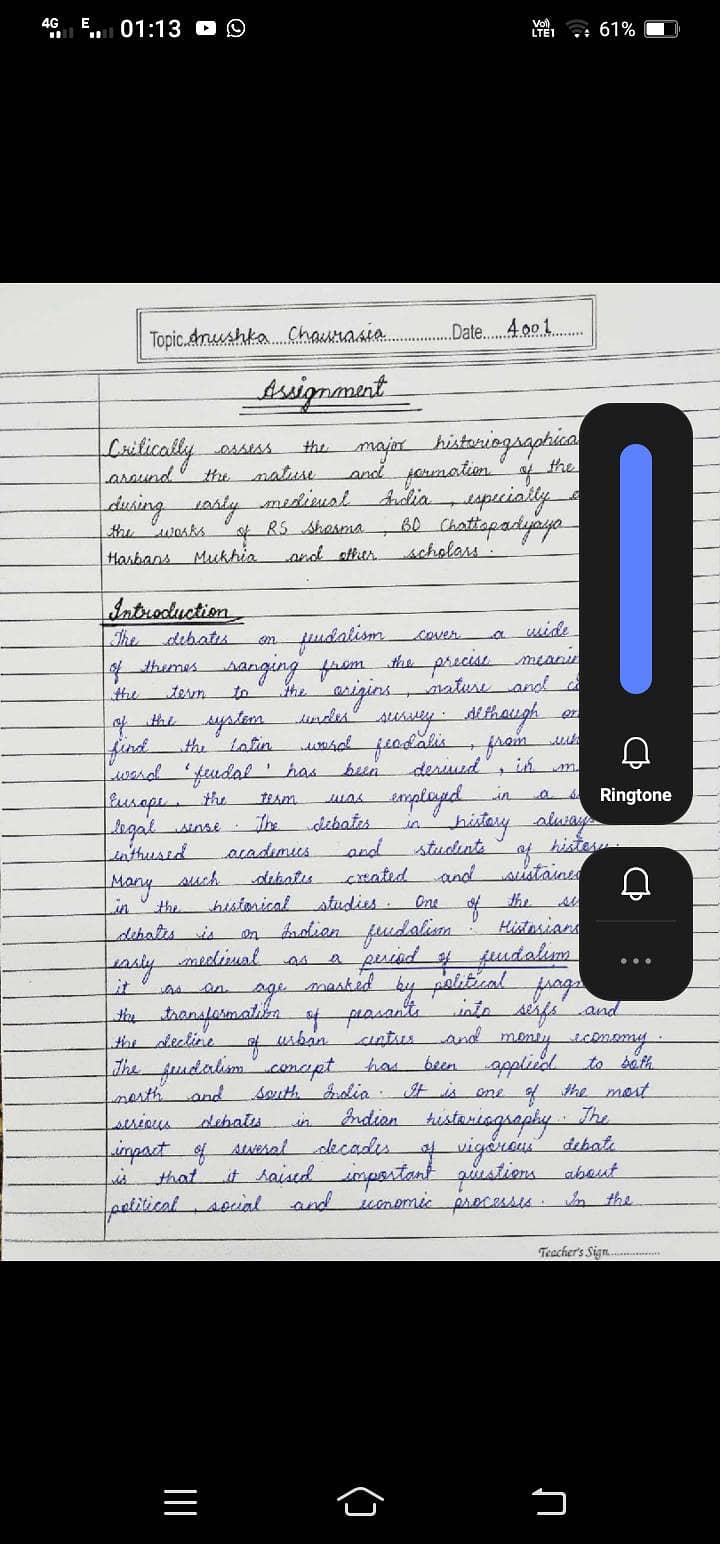 4G E 01:13 Vo)) LTE1 61%
Topic. Anushka Chaurasia Date. 4001
Assignment
Critically assess the major historiographica
around the nature and formation of the
during early medieval India , especially
the works of RS Sharma , BD Chattopadyaya
Harbans Mukhia and other scholars .
Introduction
The debates on feudalism cover a wide
of themes ranging from the precise meanin
the term to the origins , nature and
of the system under survey . Although
find the Latin word feodalis , from
word 'feudal' has been derived , in m
Europe , the term was employed in a
legal sense . The debates in history always
enthused academics and students of history
Many such debates created and sustained
in the historical studies . One of the
debates is on Indian feudalism . Historians
early medieval as a period of feudalism
it as an age marked by political fragm
the transformation of peasants into serfs and
the decline of urban centres and money economy .
The feudalism concept has been applied to both
north and South India . It is one of the most
serious debates in Indian historiography . The
impact of several decades of vigorous debate
is that it raised important questions about
political , social and economic processes . In the
Teacher's Sign
Ringtone